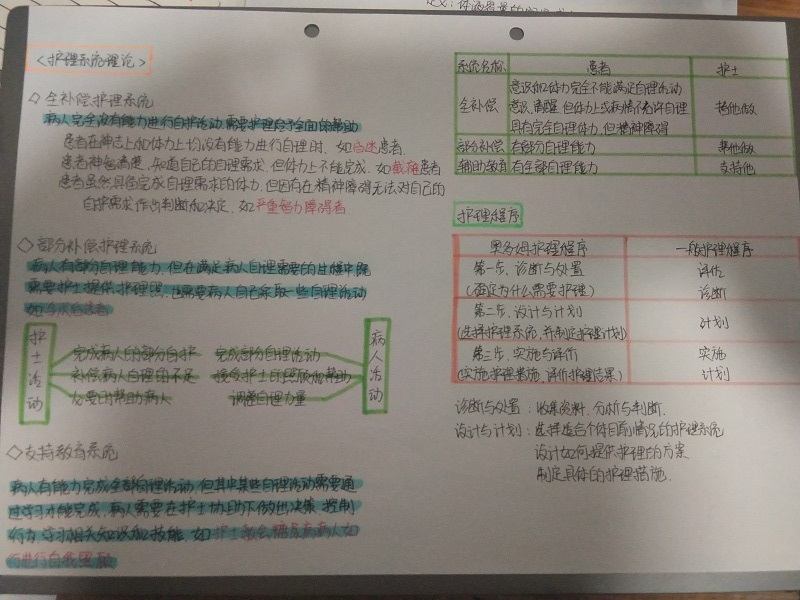 <护理系统理论>
◇全补偿护理系统
病人完全没有能力进行自护活动,需要护理给予全面的帮助
患者在神志上和体力上均没有能力进行自理时, 如昏迷患者
患者神智清醒, 知道自己的自理需求, 但体力上不能完成, 如截瘫患者
患者虽然具备完成自理需求的体力, 但因存在精神障碍无法对自己的
自护需求作出判断和决定, 如严重智力障碍者
◇部分补偿护理系统
病人有部分自理能力, 但在满足病人自理需要的过程中既
需要护士提供护理照, 也需要病人自己采取一些自理活动
护士活动
完成病人的部分自护
补偿病人自理的不足
必要的帮助病人
完成部分自理活动
接受护士的照顾和帮助
调整自理力量
病人活动
◇支持教育系统
病人有能力完成全部自理活动, 但其中某些自理活动需要通
过学习才能完成, 病人需要在护士协助下做出决策, 控制
行为, 学习相关知识和技能, 如护士教会糖尿病病人如
何进行自我照顾
系统名称 患者 护士
全补偿 意识和体力完全不能满足自理活动
意识清醒, 但体力上或病情不允许自理 替他做
具有完全自理体力, 但精神障碍
部分补偿 有部分自理能力 帮他做
辅助教育 有全部自理能力 支持他
护理程序
奥名姆护理程序 一般护理程序
第一步, 诊断与处置 评估
(否定为什么需要护理) 诊断
第二步, 设计与计划 计划
(选择护理系统, 并制定护理计划)
第三步, 实施与评价 实施
(实施护理措施, 评价护理结果) 计划
诊断与处置: 收集资料, 分析与判断.
设计与计划: 选择适合个体目前情况的护理系统
设计如何提供护理的方案
制定具体的护理措施.